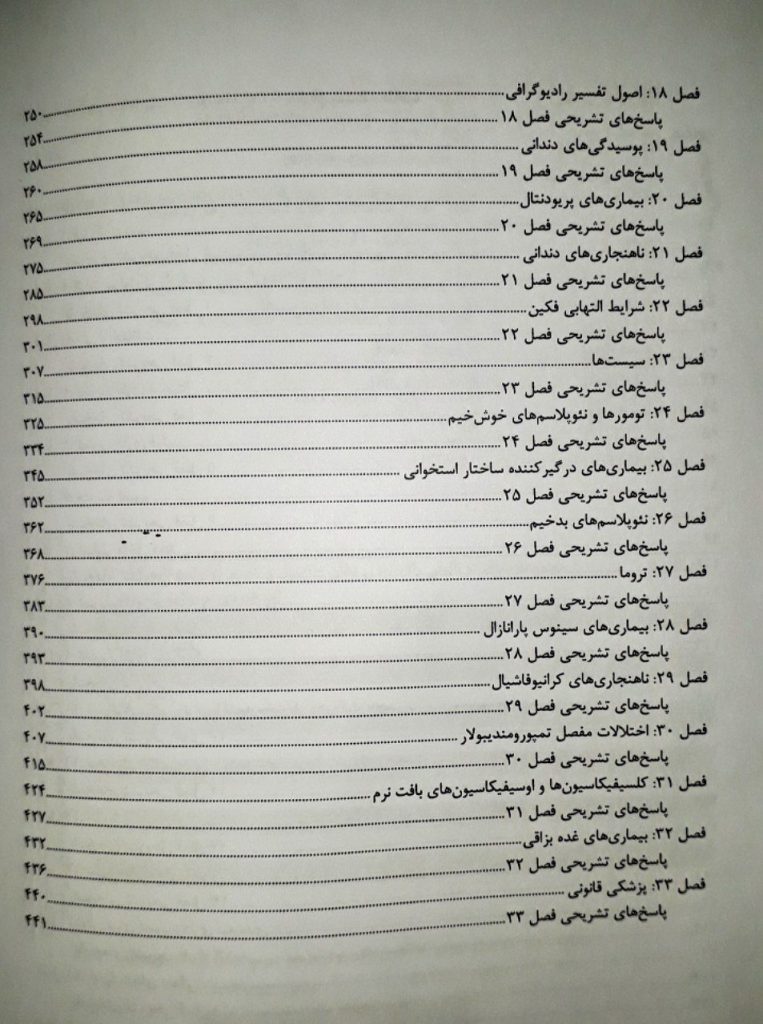 فصل ۱۸: اصول تفسیر رادیوگرافی ۲۵۰
پاسخ‌های تشریحی فصل ۱۸ ۲۵۴
فصل ۱۹: پوسیدگی‌های دندانی ۲۵۸
پاسخ‌های تشریحی فصل ۱۹ ۲۶۰
فصل ۲۰: بیماری‌های پریودنتال ۲۶۵
پاسخ‌های تشریحی فصل ۲۰ ۲۶۹
فصل ۲۱: ناهنجاری‌های دندانی ۲۷۵
پاسخ‌های تشریحی فصل ۲۱ ۲۸۵
فصل ۲۲: شرایط التهابی فکین ۲۹۸
پاسخ‌های تشریحی فصل ۲۲ ۳۰۱
فصل ۲۳: سیست‌ها ۳۰۷
پاسخ‌های تشریحی فصل ۲۳ ۳۱۵
فصل ۲۴: تومورها و نئوپلاسم‌های خوش‌خیم ۳۲۵
پاسخ‌های تشریحی فصل ۲۴ ۳۳۴
فصل ۲۵: بیماری‌های درگیرکننده ساختار استخوانی ۳۴۵
پاسخ‌های تشریحی فصل ۲۵ ۳۵۲
فصل ۲۶: نئوپلاسم‌های بدخیم ۳۶۲
پاسخ‌های تشریحی فصل ۲۶ ۳۶۸
فصل ۲۷: تروما ۳۷۶
پاسخ‌های تشریحی فصل ۲۷ ۳۸۳
فصل ۲۸: بیماری‌های سینوس پارانازال ۳۹۰
پاسخ‌های تشریحی فصل ۲۸ ۳۹۳
فصل ۲۹: ناهنجاری‌های کرانیوفاشیال ۳۹۸
پاسخ‌های تشریحی فصل ۲۹ ۴۰۲
فصل ۳۰: اختلالات مفصل تمپورومندیبولار ۴۰۷
پاسخ‌های تشریحی فصل ۳۰ ۴۱۵
فصل ۳۱: کلسیفیکاسیون‌ها و اوسیفیکاسیون‌های بافت نرم ۴۲۴
پاسخ‌های تشریحی فصل ۳۱ ۴۲۷
فصل ۳۲: بیماری‌های غده بزاقی ۴۳۲
پاسخ‌های تشریحی فصل ۳۲ ۴۳۶
فصل ۳۳: پزشکی قانونی ۴۴۰
پاسخ‌های تشریحی فصل ۳۳ ۴۴۱